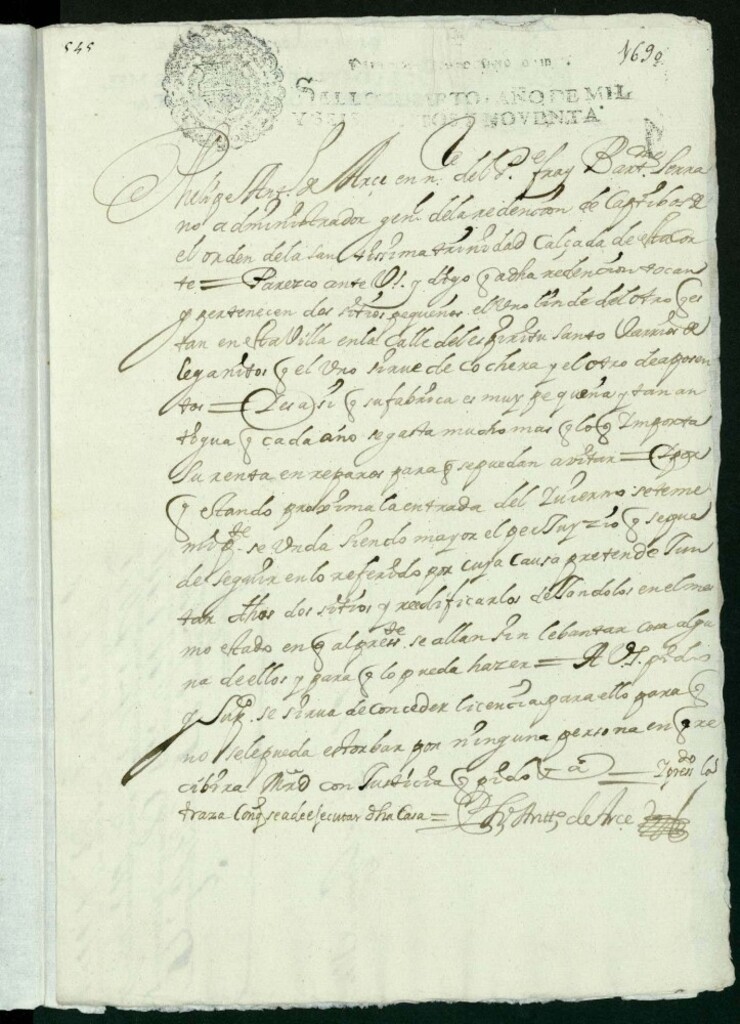 545
1690
SELLO QUARTO, AÑO DE MIL
Y SEISCIENTOS Y NOVENTA.
Phelipe Ant.º de Arce en n.e del P.e fray Bart.me Serra
no administrador gen.l dela redencion de Captibos de
el orden dela san tissima trinidad Calçada de esta cor
te = Parezco ante V.S. y digo q adha redencion tocan
y pertenecen dos sitios pequeños el Uno linde del otro q es
tan en esta Villa en la Calle del espiritu santo Varrio de
leganitos q el Uno sirue de Cochera y el otro de aposen
tos = I es asi q su fabrica es muy pequeña y tan an
tigua q cada año se gasta mucho mas q lo q Importa
su renta en reparos para q se puedan avitar = I por
q estando proxima la entrada del Iuierno se teme
se Unda siendo mayor el per Iuyzio q se pue
de seguir en lo referido por cuya Causa pretende Iun
tar dhos dos sitios y redificarlos dejandolos en el mis
mo estado en q al press.te se allan sin lebantar cosa algu
na de ellos y para q lo pueda hazer = A V.S. pido
y Sup.co se sirua de conceder licencia para ello para q
no sele pueda estorbar por ninguna persona en q re
cibira Mrd con Justicia q pido = I press.do la
traza Conq sea de ejecutar dha Casa = Ph.e Antt.º de Arce